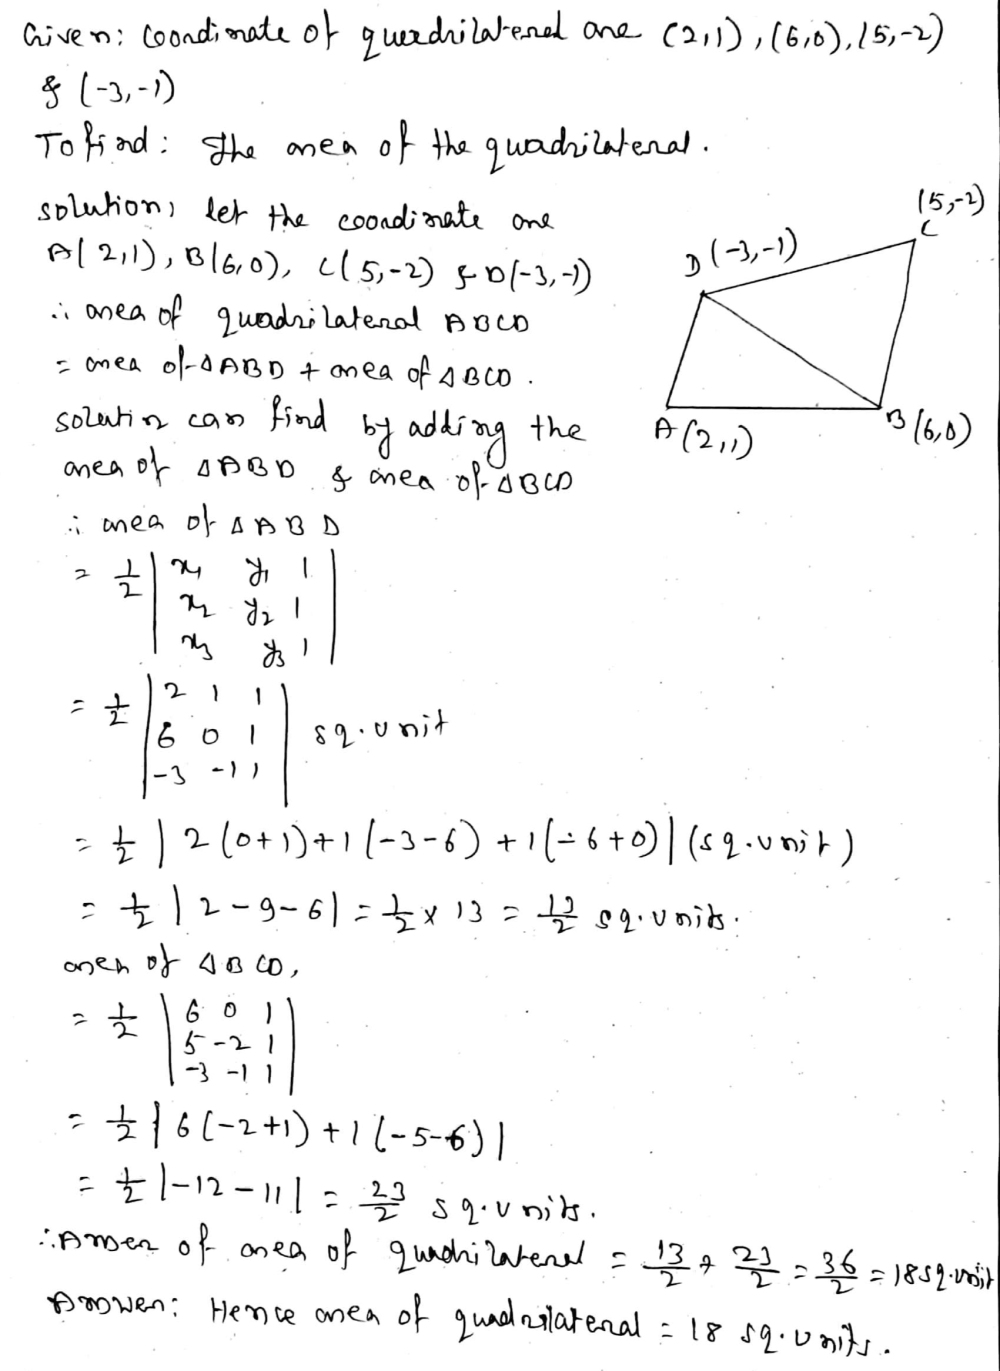 Given: Coordinate of quadrilateral are (2,1), (6,0), (5,-2)
& (-3,-1)
To find: The area of the quadrilateral.
solution, let the coordinate are
A(2,1), B(6,0), C(5,-2) & D(-3,-1)
∴ area of quadrilateral ABCD
= area of ΔABD + area of ΔBCD.
solution can find by adding the
area of ΔABD & area of ΔBCD
(5,-2)
C
D (-3,-1)
A (2,1)
B (6,0)
∴ area of ΔABD
= 1/2 | x1 y1 1 |
| x2 y2 1 |
| x3 y3 1 |
= 1/2 | 2 1 1 |
| 6 0 1 | sq. unit
| -3 -1 1 |
= 1/2 | 2(0+1)+1(-3-6) + 1(-6+0) | (sq. unit)
= 1/2 | 2-9-6 | = 1/2 × 13 = 13/2 sq. units.
area of ΔBCD,
= 1/2 | 6 0 1 |
| 5 -2 1 |
| -3 -1 1 |
= 1/2 | 6(-2+1) + 1(-5-6) |
= 1/2 |-12-11| = 23/2 sq. units.
∴ of area of quadrilateral = 13/2 + 23/2 = 36/2 = 18 sq. unit
Answer: Hence area of quadrilateral = 18 sq. units.